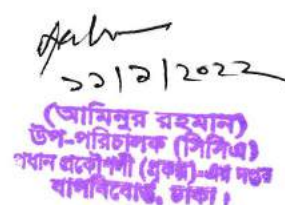 ১১|১|2022
(আমিনুর রহমান)
উপ-পরিচালক (সিসিএ)
প্রধান প্রকৌশলী (প্রকল্প)-এর দপ্তর
বাপবিবোর্ড, ঢাকা।